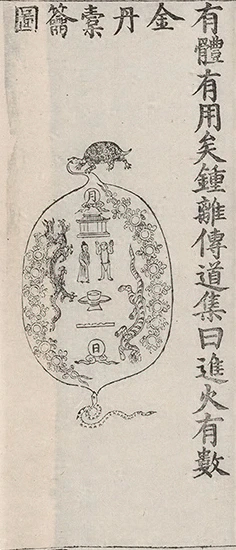 有體有用矣鍾離傳道集曰進火有數
金丹橐籥圖
月
日